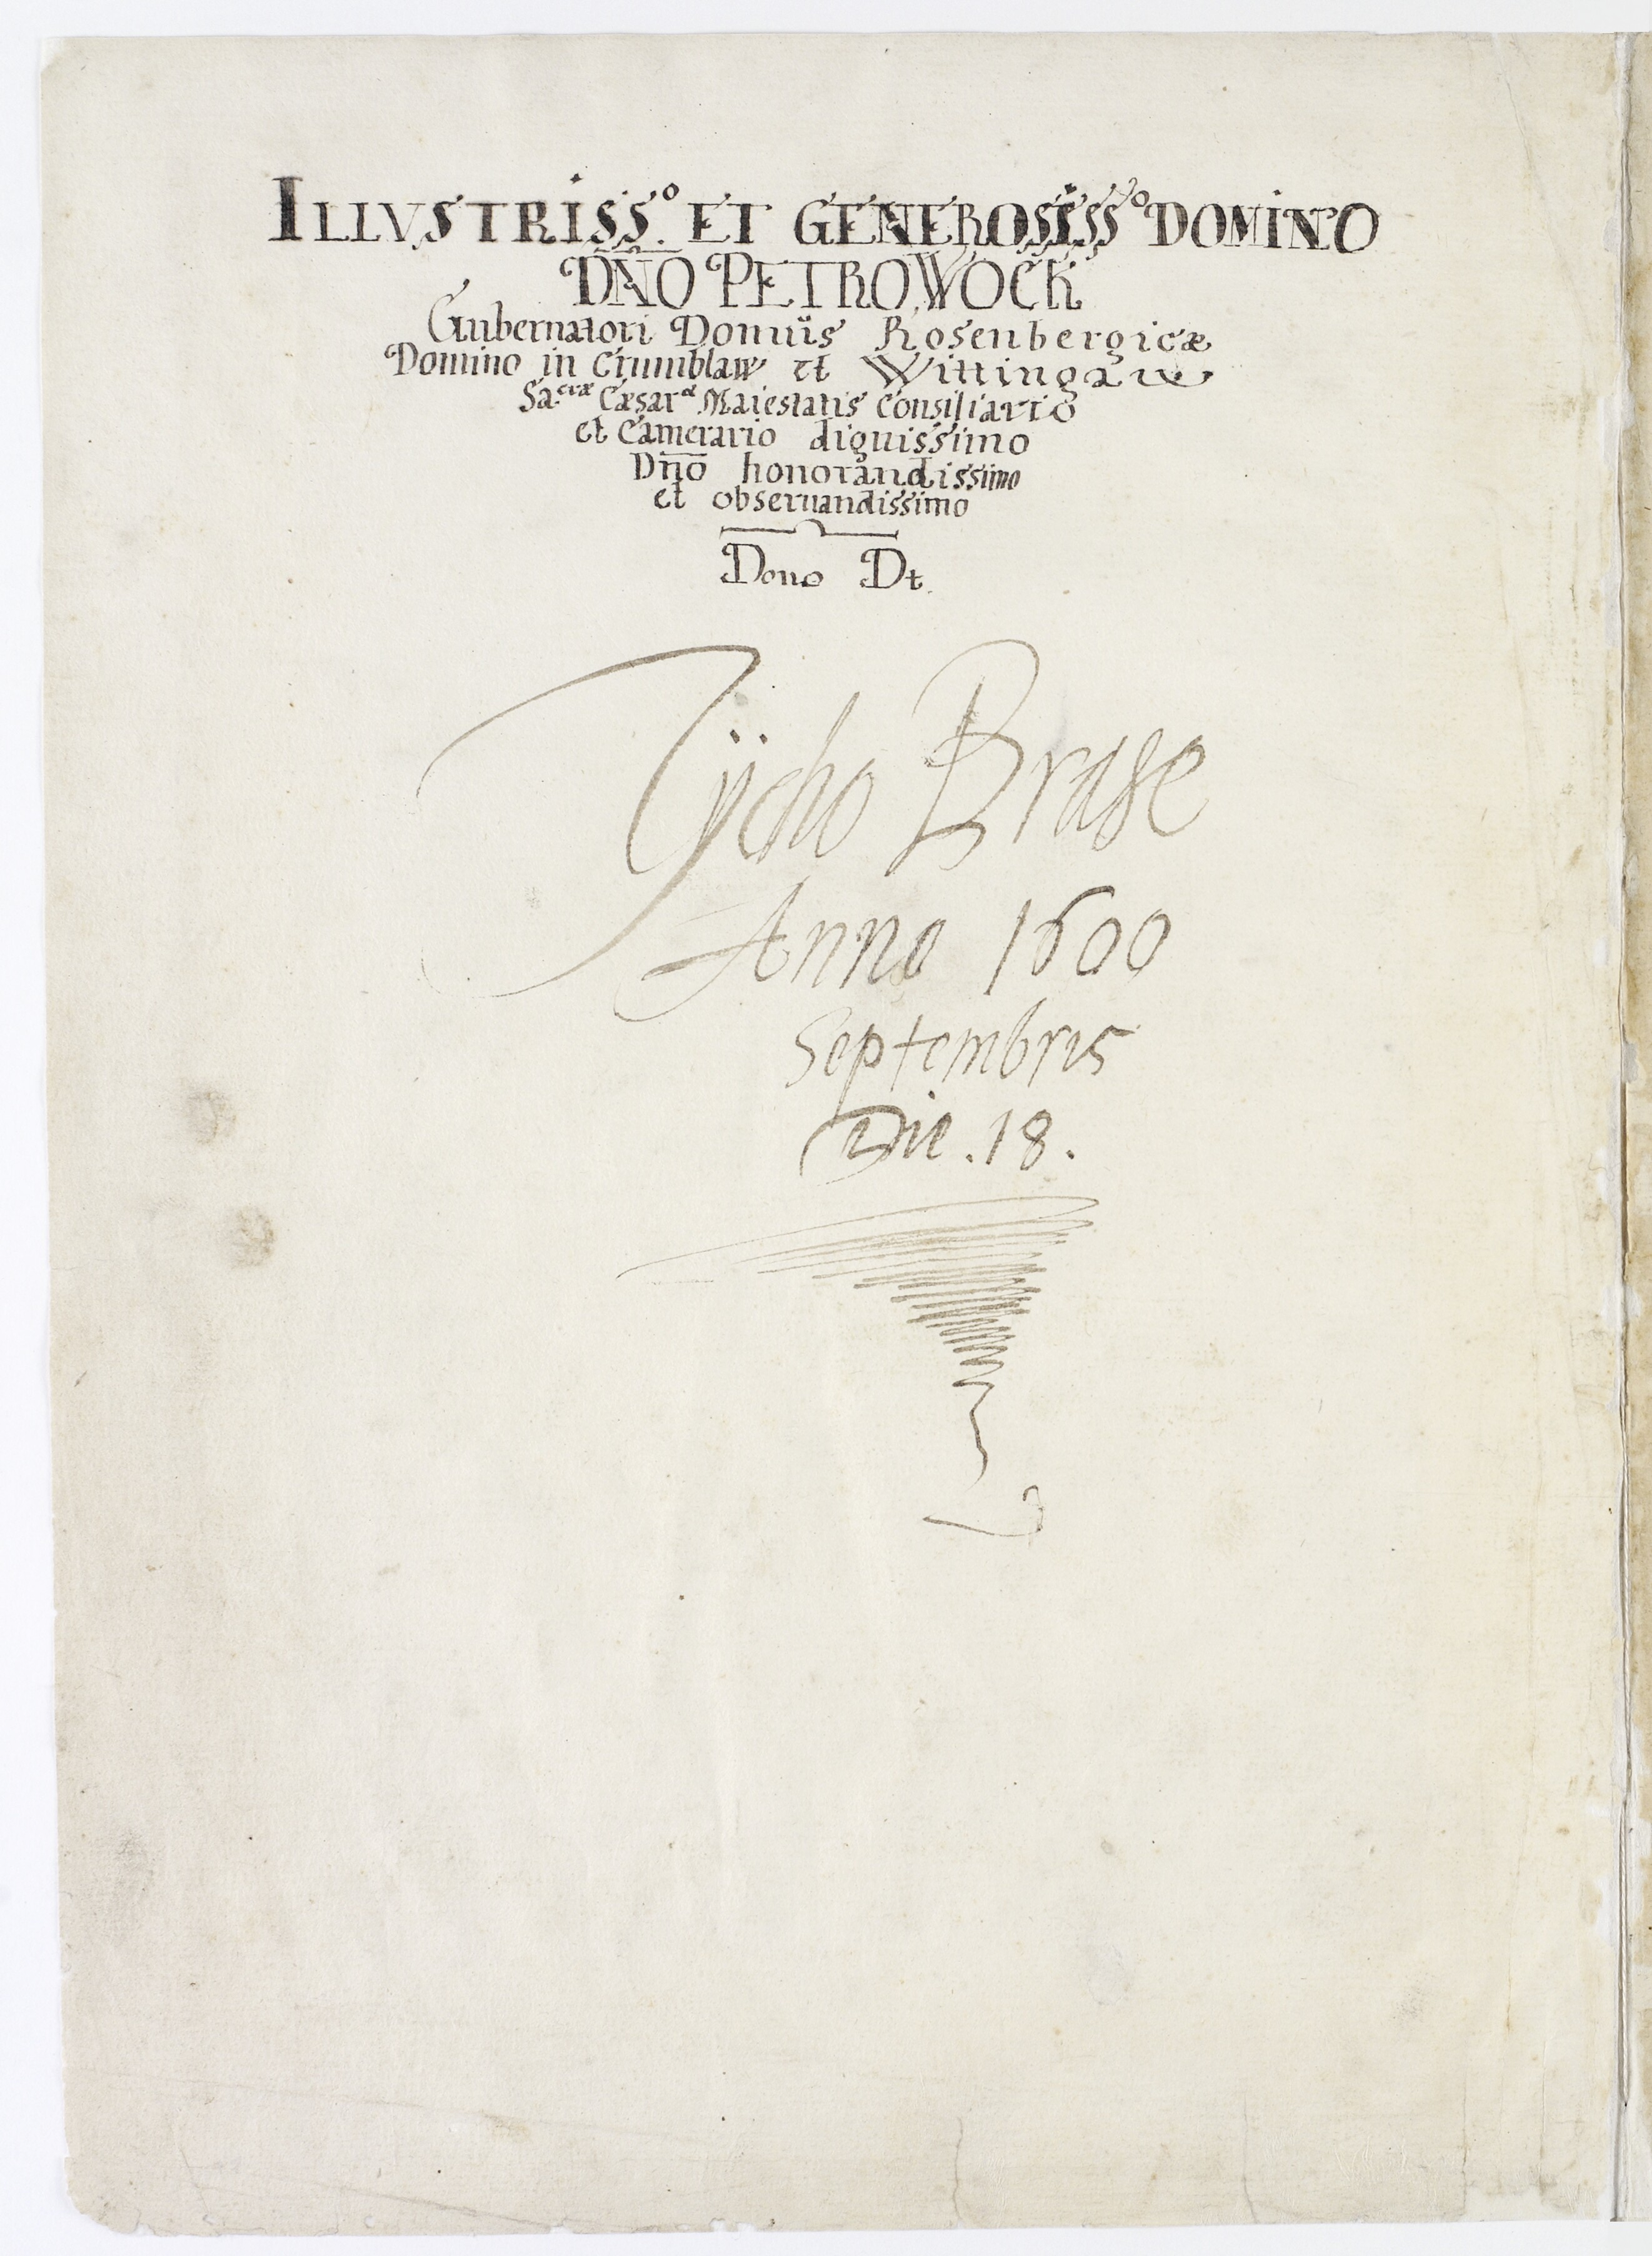 ILLVSTRISS.º ET GENEROSISSº DOMINO
DÑO PETRO WOCK
Gubernatori Domus Rosenbergicæ
Domino in Crumblaw et Wittingaw
Sa.cræ Cæsaræ Maiestatis Consiliario
et Camerario dignissimo
Dño honorandissimo
et obseruandissimo
Dono Dt.
Tÿcho Brahe
Anno 1600
Septembris
Die .18.